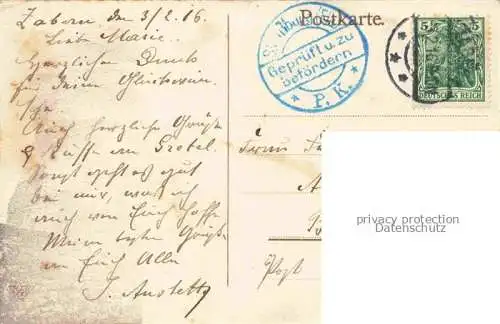 Zabern den 3/2.16.
Liebe Marie.
Herzlichen Dank
für Deinen Glückwunsch
Auch herzliche Grüße
& Küsse von
Sonst geht es gut
bei mir, was ich
auch von Euch hoffe
Meine besten Grüße
an Euch Alle
Postkarte.
Geprüft u. zu
befördern
P. K.
5 5
DEUTSCHES REICH
privacy protection
Datenschutz
Post